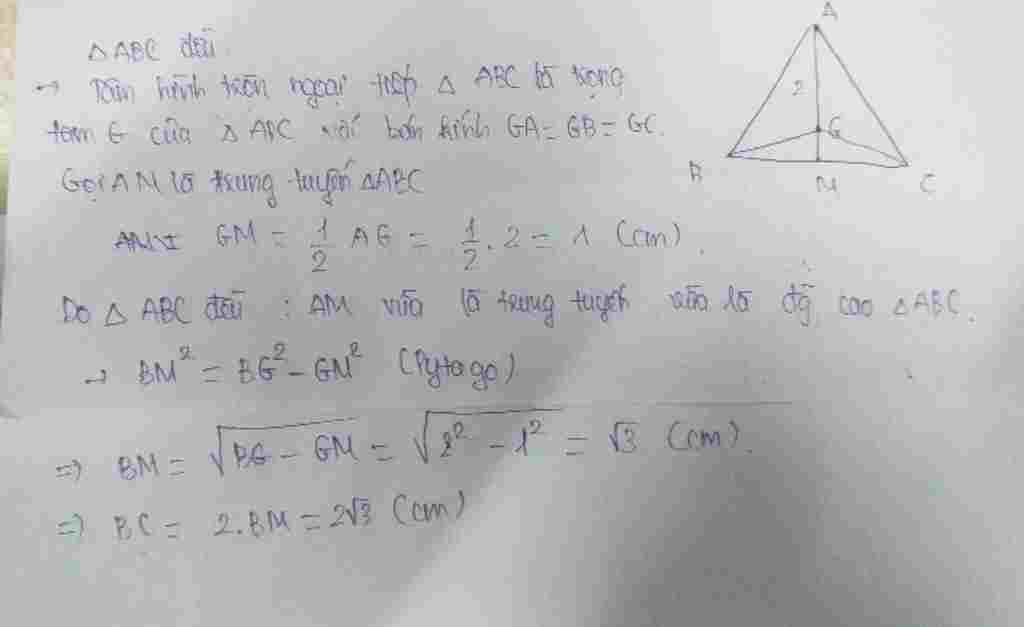 △ ABC đều
→ Tâm hình tròn ngoại tiếp △ ABC là trọng
tâm G của △ ABC với bán kính GA = GB = GC.
Gọi AM là trung tuyến △ABC
GM = 1/2 AG = 1/2 . 2 = 1 (cm).
Do △ ABC đều : AM vừa là trung tuyến vừa là đg cao △ABC.
→ BM² = BG² - GM² (Pytago)
=> BM = √(BG - GM) = √(2² - 1²) = √3 (cm).
=> BC = 2.BM = 2√3 (cm)
A
2
G
B
M
C